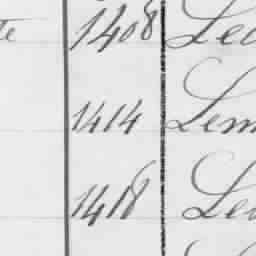 te 1408 Lea
1414 Lem
1418 Leu